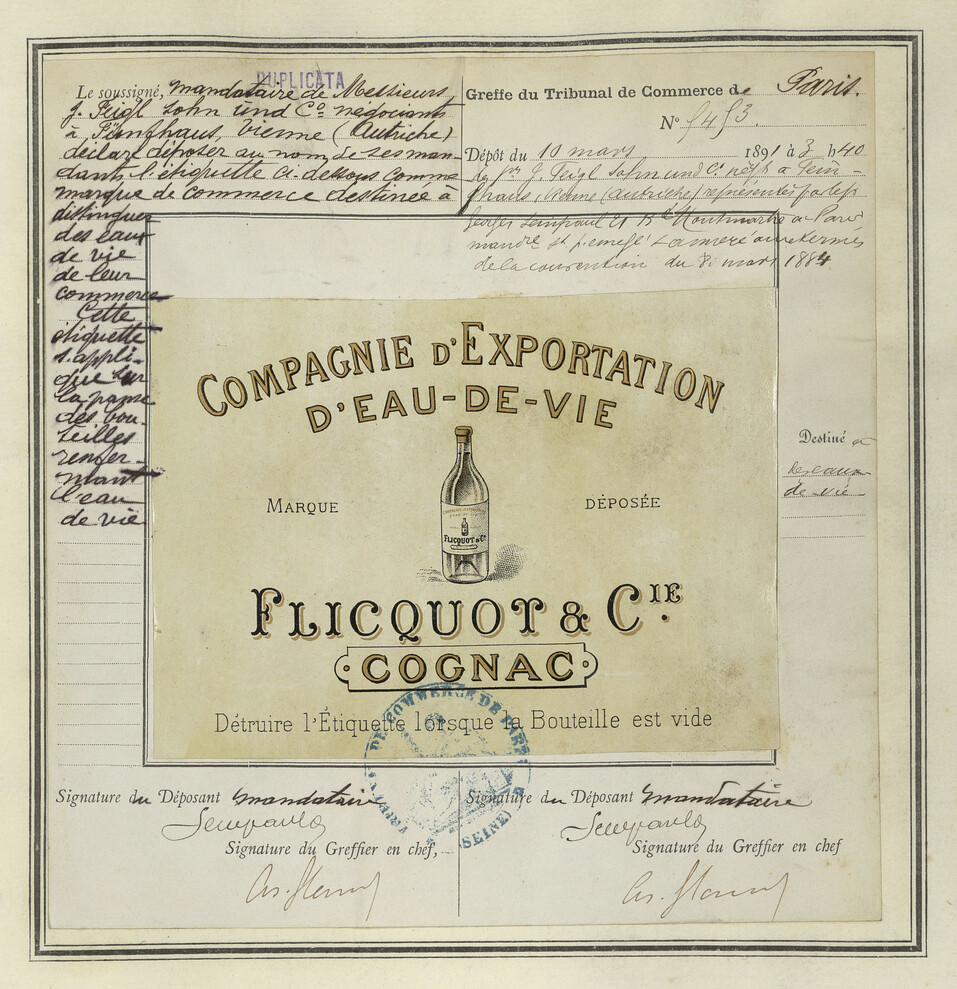 DUPLICATA
Le soussigné, mandataire de Messieurs
J. Feigl Sohn und Co négociants
à Fünfhaus, Vienne (Autriche)
déclare déposer au nom de ses man-
dants l'étiquette ci-dessous comme
marque de commerce destinée à
distinguer
des eaux
de vie
de leur
commerce
Cette
étiquette
s'appli-
que sur
la panse
des bou-
teilles
renfer-
mant
l'eau
de vie
Greffe du Tribunal de Commerce de Paris.
No
Dépôt du 10 mars 1891 à 3 h 40
J. Feigl Sohn und Co négts à Fün-
fhaus, Vienne (Autriche) représentés par le sr
Georges Montmartre à Paris
mandre
de la convention du mars 1884
COMPAGNIE D'EXPORTATION
D'EAU-DE-VIE
MARQUE DÉPOSÉE
FLICQUOT & Co
FLICQUOT & CIE.
COGNAC
Détruire l'Étiquette lorsque la Bouteille est vide
Destiné à
des eaux
de vie
DE COMMERCE DE PARIS
(SEINE)
Signature du Déposant mandataire
Signature du Greffier en chef,
Signature du Déposant mandataire
Signature du Greffier en chef